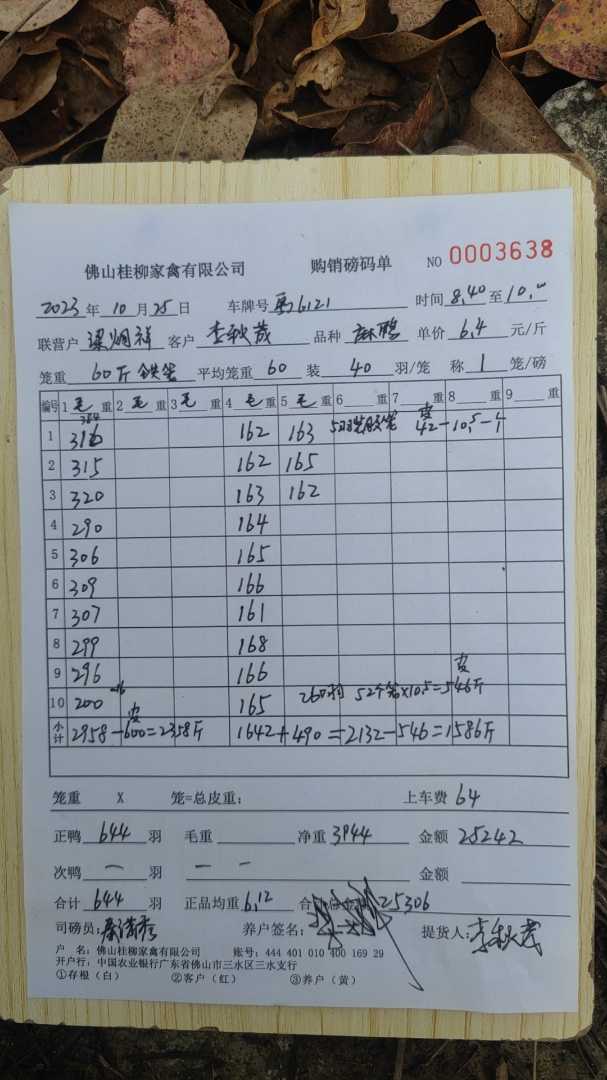 佛山桂柳家禽有限公司 购销磅码单 NO 0003638
2023年10月25日 车牌号粤26121 时间8.40至10.
联营户梁炯祥 客户李秋茂 品种麻鸭 单价6.4元/斤
笼重60斤铁笼 平均笼重60 装40羽/笼 称1笼/磅
编号 1毛重 2毛重 3毛重 4毛重 5毛重 6重 7皮重 8重 9重
384
1 316 162 163 42-10.5-4
2 315 162 165
3 320 163 162
4 290 164
5 306 165
6 309 166
7 307 161
8 299 168
9 296 166 皮
10 200 165 260羽 52个笼×10.5=546斤
皮
小计 2958-600=2358斤 1642+490=2132-546=1586斤
笼重 X 笼=总皮重: 上车费64
正鸭644羽 毛重 净重3944 金额25242
次鸭一羽 一 一 金额
合计644羽 正品均重6.12 合 25306
司磅员: 养户签名: 提货人:李秋茂
户 名: 佛山桂柳家禽有限公司 账号: 444 401 010 400 169 29
开户行: 中国农业银行广东省佛山市三水区三水支行
①存根(白) ②客户(红) ③养户(黄)